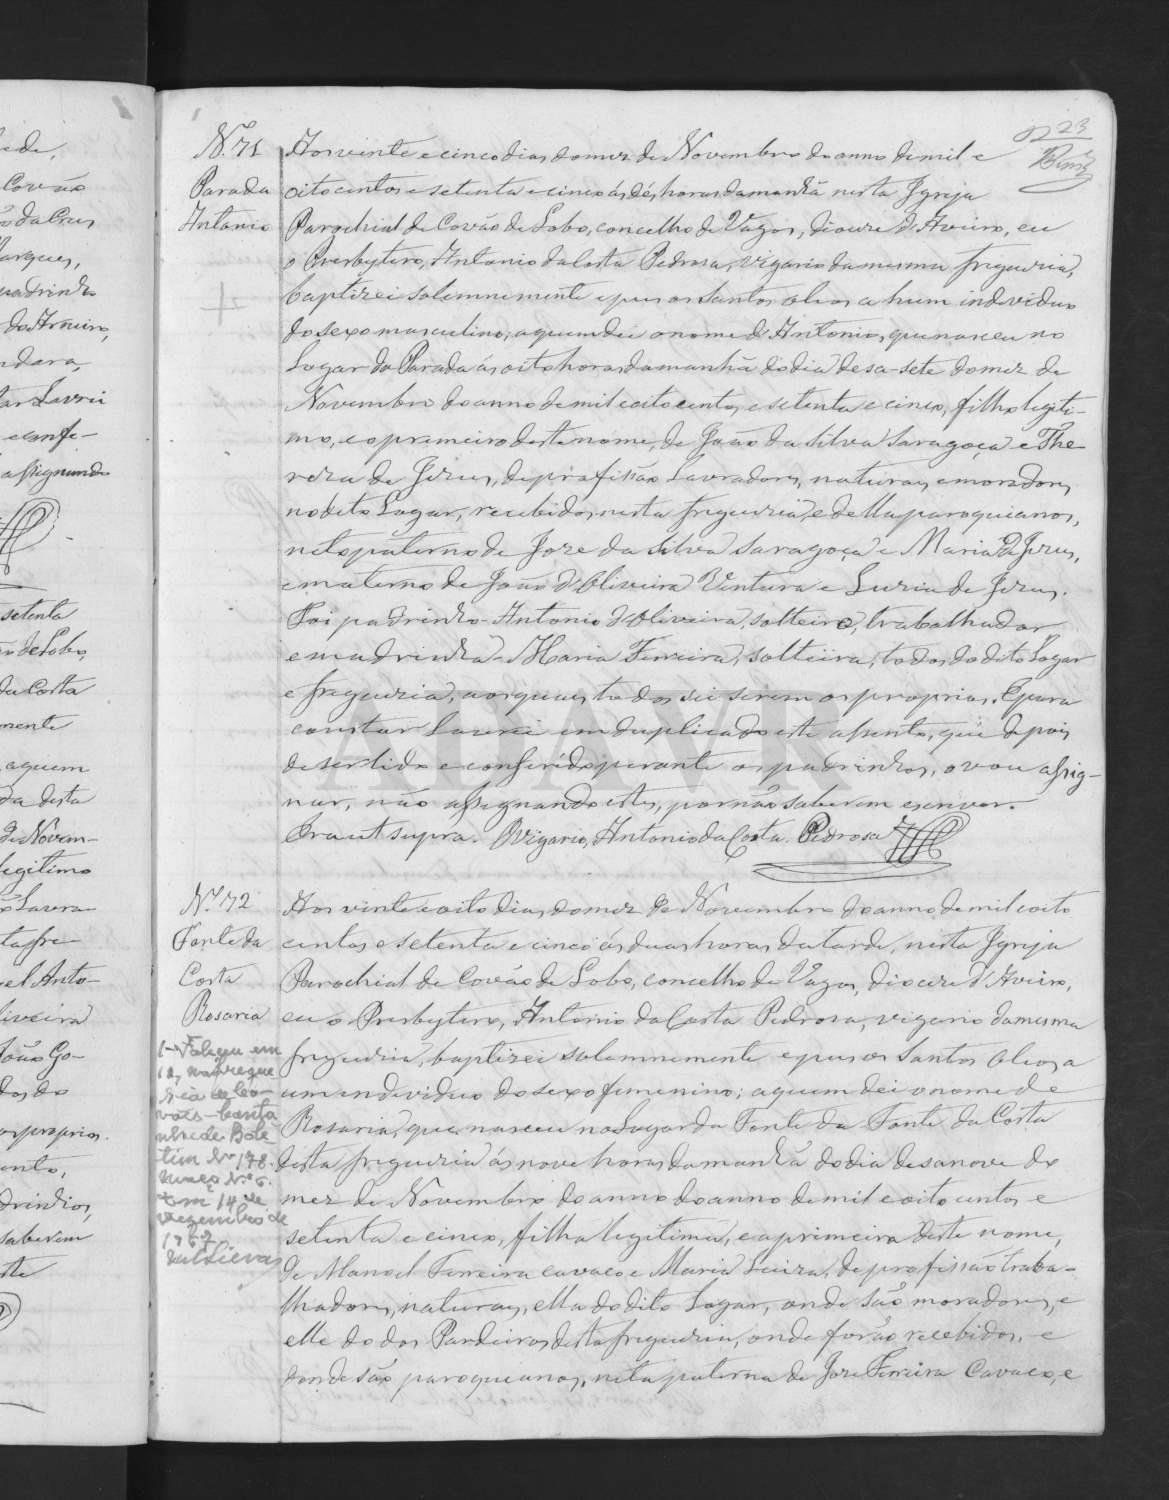 23
N.º 71
Parada
Antonio
Aos vinte e cinco dias do mez de Novembro do anno de mil e
oitocentos e setenta e cinco ás dés horas da manhã nesta Igreja
Parochial de Covão de Lobo, concelho de Vagos, diocese d'Aveiro, eu
o Presbytero, Antonio da Costa Pedrosa, vigario da mesma freguezia,
baptizei solemnemente e pus os Santos oleos a hum individuo
do sexo masculino; a quem dei o nome d'Antonio, que nasceu no
Logar da Parada ás oito horas da manhã do dia desa-sete do mez de
Novembro do anno de mil e oitocentos e setenta e cinco, filho legiti-
mo, e o premeiro deste nome, de João da Silva Saragoça e The
reza de Jezus, de profissão Lavradores, naturaes e moradores
no dito Logar, recebidos nesta freguezia, e della paroquianos,
neto paterno de Joze da Silva Saragoça e Maria de Jezus,
e materno de João d'Oliveira Ventura e Luzia de Jezus.
Foi padrinho Antonio d'Oliveira, solteiro, trabalhador
e madrinha Maria Ferreira, solteira, todos do dito Logar
e freguezia, aos quaes todos sei serem os proprios. E para
constar Lavrei em duplicado este assento, que depois
de ser lido e conferido perante os padrinhos, o vou assig-
nar, não assignando estes, por não saberem escrever.
Era ut supra. O Vigario, Antonio da Costa Pedrosa
N.º 72
Fonte da
Costa
Rosaria
Aos vinte e oito dias do mez de Novembro do anno de mil e oito
centos e setenta e cinco ás duas horas da tarde, nesta Igreja
Parochial de Covão de Lobo, concelho de Vagos, diocese d'Aveiro,
eu o Presbytero, Antonio da Costa Pedrosa, vigario da mesma
freguezia, baptizei solemnemente e pus os Santos Oleos a
um individuo do sexo femenino; a quem dei o nome de
Rosaria, que nasceu no Logar da Fonte da Fonte da Costa
desta freguezia ás nove horas da manhã do dia desanove do
mez de Novembro do anno do anno de mil e oitocentos e
setenta e cinco, filha legitima, e a primeira deste nome,
de Manoel Ferreira Cavaco e Maria Luiza, de profissão traba-
lhadores, naturaes, ella do dito Logar, onde são moradores, e
elle do dos Pardeiros desta freguezia, onde forão recebidos, e
donde são paroquianos, neta paterna de Joze Ferreira Cavaco, e
1-Faleceu em
freguê
sia de Co-
vões-Canta
nhede Bole
tim Nº 178.
maço Nº 6.
Em 14 de
Dezembro de
ADAVR